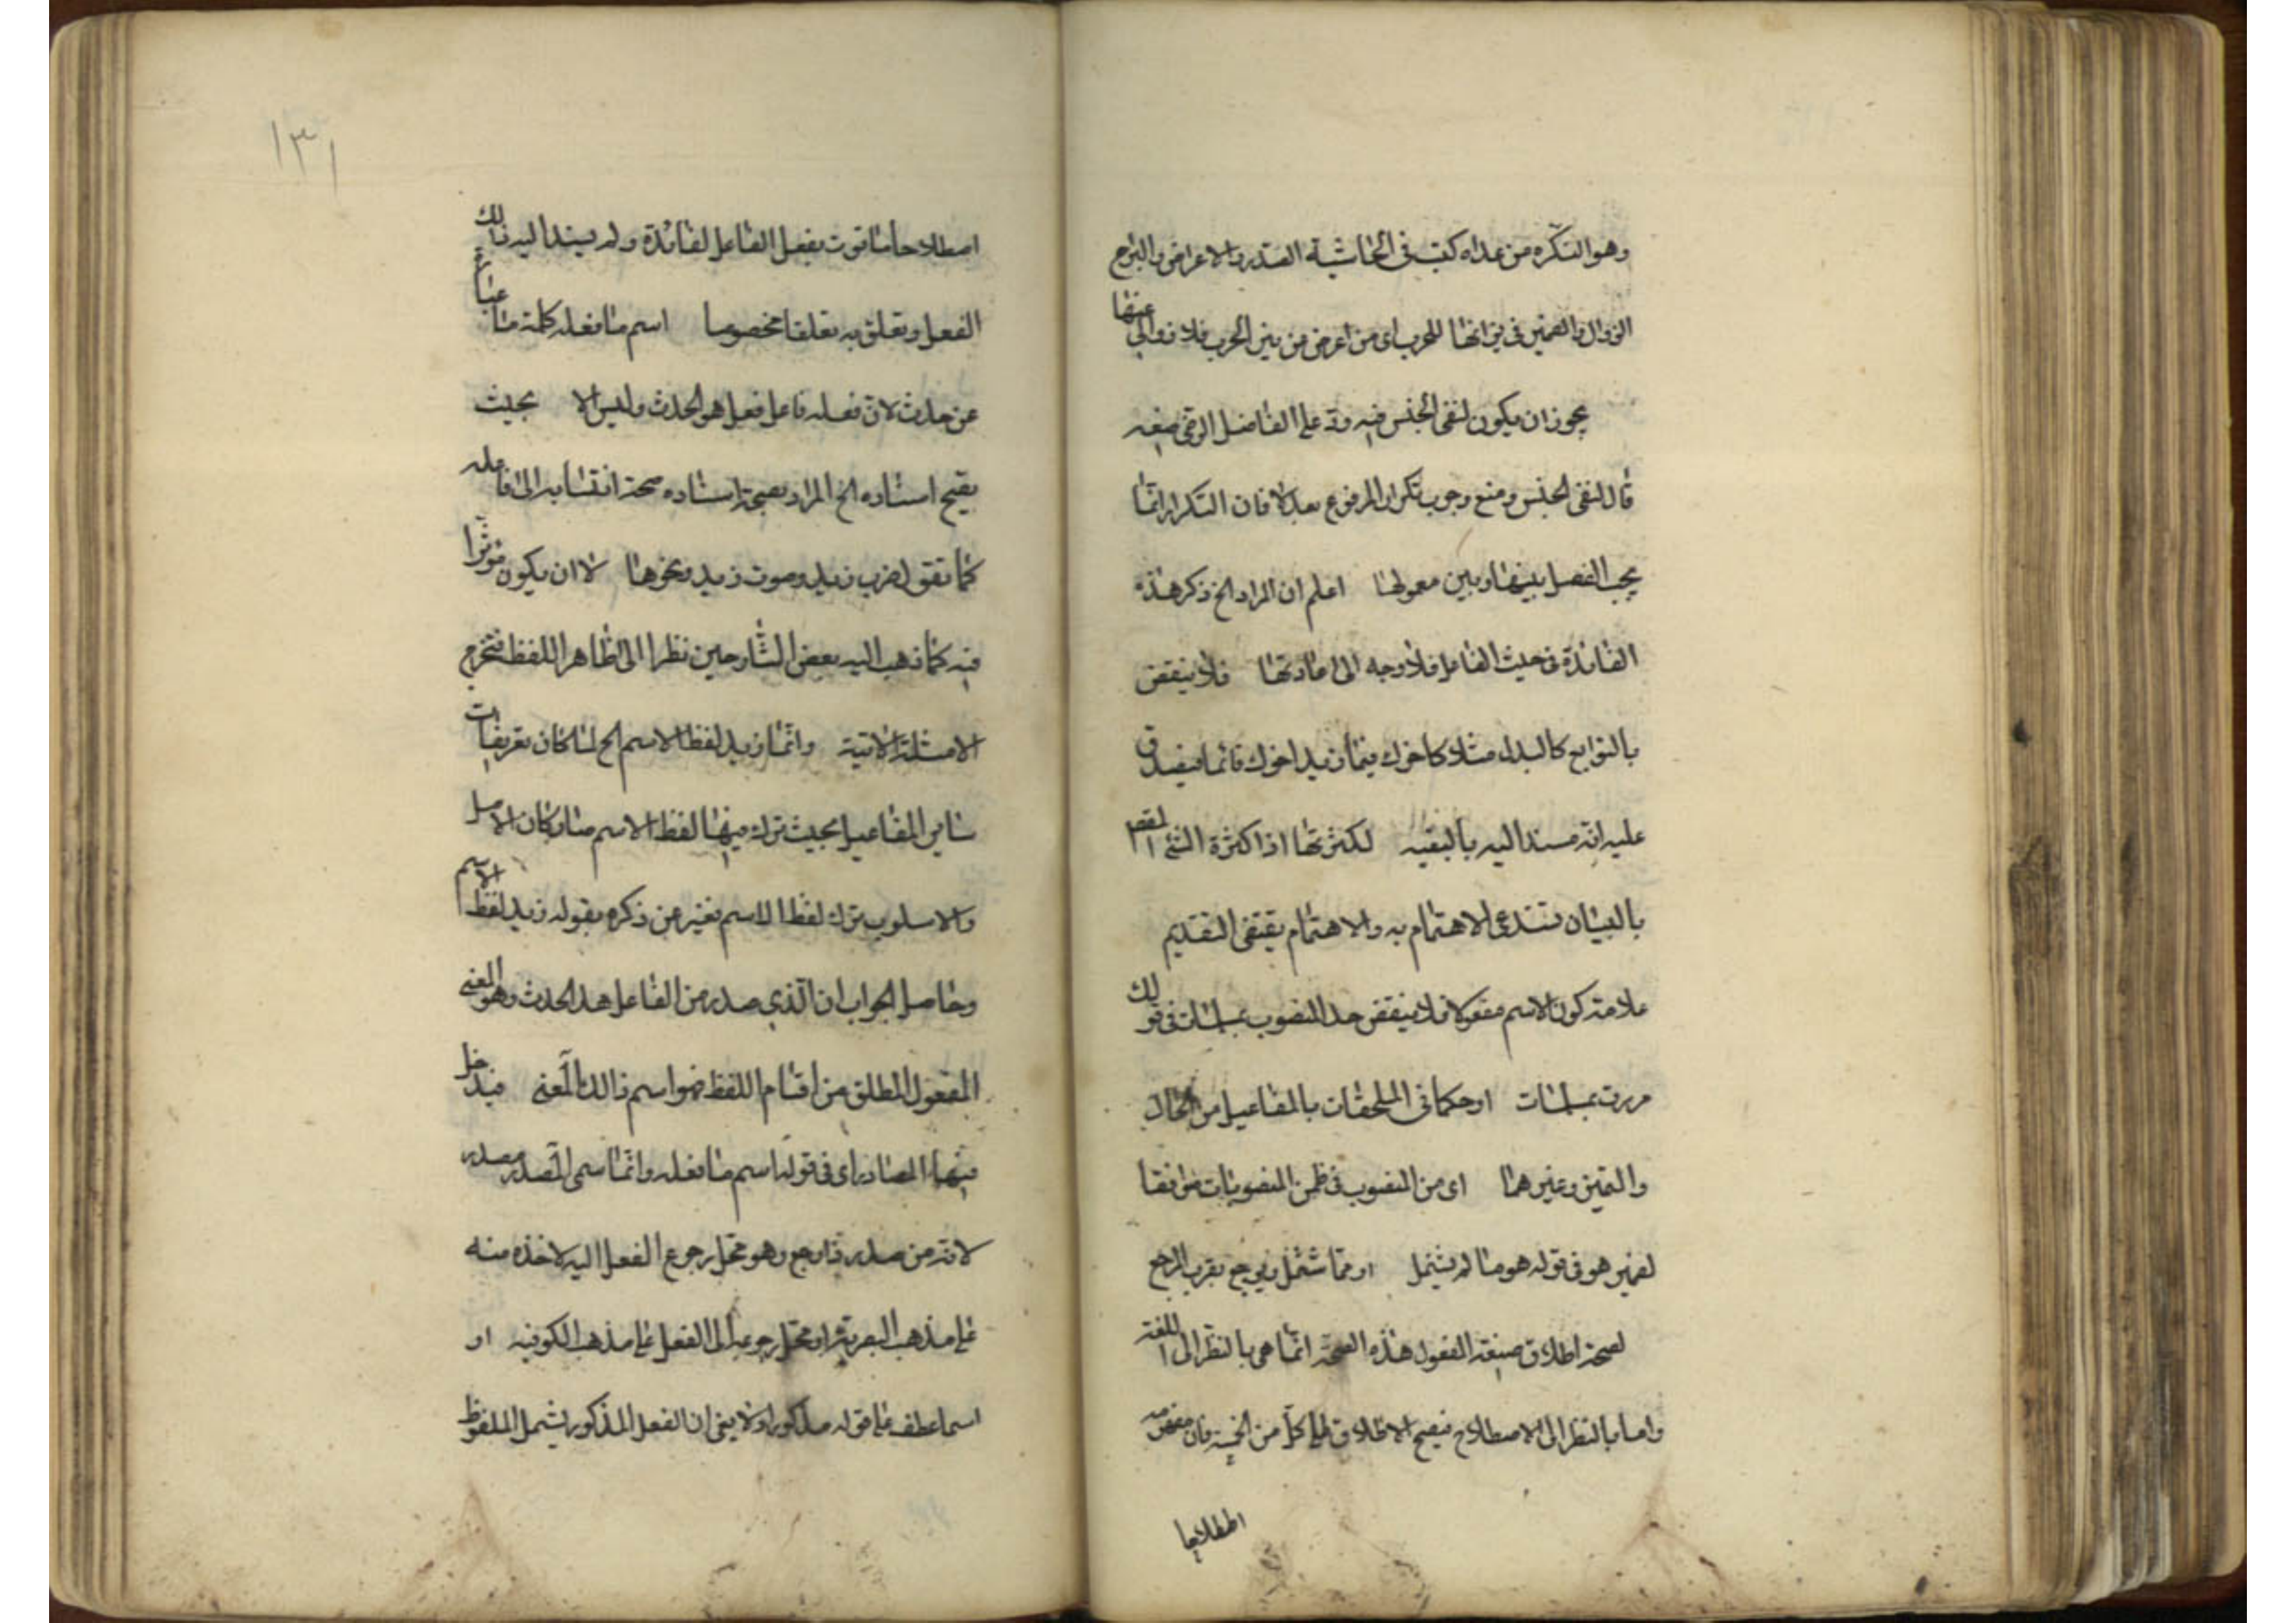 وهو النكره من عداه كتب فى الحاشية الصد والاعراض والبرح
الزوال والضمير فى نيرانها للحرب اى من اعرض من نيران الحرب فلا زوال لى عنها
يجوز ان يكون لنفى الجنس فيه رد على الفاضل الرضى فيه
قال لنفى الجنس ومنع وجوب تكرار المرفوع بعد لا فان التكرار انما
يجب الفصل بينها وبين معمولها اعلم ان المراد الخ ذكر هذه
الفائدة فى حيث الفاعل فلا وجه الى اعادتها فلا ينتقض
بالتوابع كالبدل مثلا كاخوك فيما زيد اخوك قائما فيصدق
عليه انه مسند اليه بالتبعيه لكثرتها اذ كثرة الشئ المقص
بالبيان تستدعى الاهتمام به والاهتمام يقتضى التقديم
علامة كون الاسم مفعولا فلا ينتقض حد المنصوب بمسلمات فى قولك
مررت بمسلمات او حكما فى الملحقات بالمفاعيل من الحال
والتميز وغيرهما اى من المنصوب فى ضمن المنصوبات موافقا
لضمير هو فى قوله هو ما لم يشتمل او مما شتمل ويرجح بقرب المرجع
لصحة اطلاق صيغة المفعول هذه الصحة انما هى بالنظر الى اللغة
واما بالنظر الى الاصطلاح فيصح الاطلاق على كل من الخمسة فان مفهومه
اصطلاحا
١٣١
اصطلاحا ما قرن بفعل الفاعل لفائدة ولم يسند اليه ذلك
الفعل وتعلق به تعلقا مخصوصا اسم ما فعله كلمة ما عبارة
عن حدث لان فعله فاعل فعل هو الحدث وليس الا بحيث
يصح اسناده الخ المراد بصحة اسناده صحة انتسابه الى فاعله
كما تقول ضرب زيد وموت زيد ونحوها لا ان يكون مؤثرا
فيه كما ذهب اليه بعض الشارحين نظرا الى ظاهر اللفظ فتخرج
الامثلة الاتية وانما زيد لفظ الاسم الخ لما كان تعريفات
ساير المفاعيل بحيث ترك فيها لفظ الاسم صار كان الاصل
والاسلوب ترك لفظ الاسم تغير عن ذكره بقوله زيد لفظ الاسم
وحاصل الجواب ان الذي صدر من الفاعل هذا الحدث وهو المعنى
المفعول المطلق من اقسام اللفظ فهو اسم ذالك المعنى فيدخل
فيها المصادر اى فى قوله اسم ما فعله وانما سمى المصدر مصدر
لانه من صدر فارجع وهو محل رجوع الفعل اليه لاخذه منه
على مذهب البصرية او محل رجوعه الى الفعل على مذهب الكوفيه او
اسما عطف على قوله مذكورا ولا يخفى ان الفعل المذكور يشمل الملفوظ